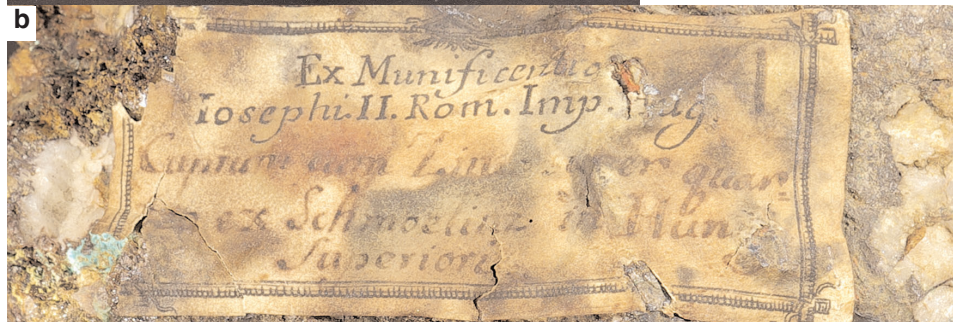 b
Ex Munificentia
Iosephi.II.Rom.Imp.Aug.
Cuprum cum Zinco super quar
ex Schmoelinz in Hun
Superiore